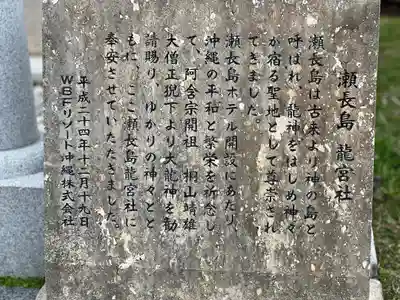 瀬長島 龍宮社
瀬長島は古来より神の島と
呼ばれ、龍神をはじめ神々
が宿る聖地として尊崇され
てきました。
瀬長島ホテル開設にあたり、
沖縄の平和と繁栄を祈念し
て、阿含宗開祖 桐山靖雄
大僧正猊下より大龍神を勧
請賜り、ゆかりの神々とと
もに、ここ瀬長島龍宮社に
奉安させていただきました。
平成二十四年十二月十九日
WBFリゾート沖縄株式会社